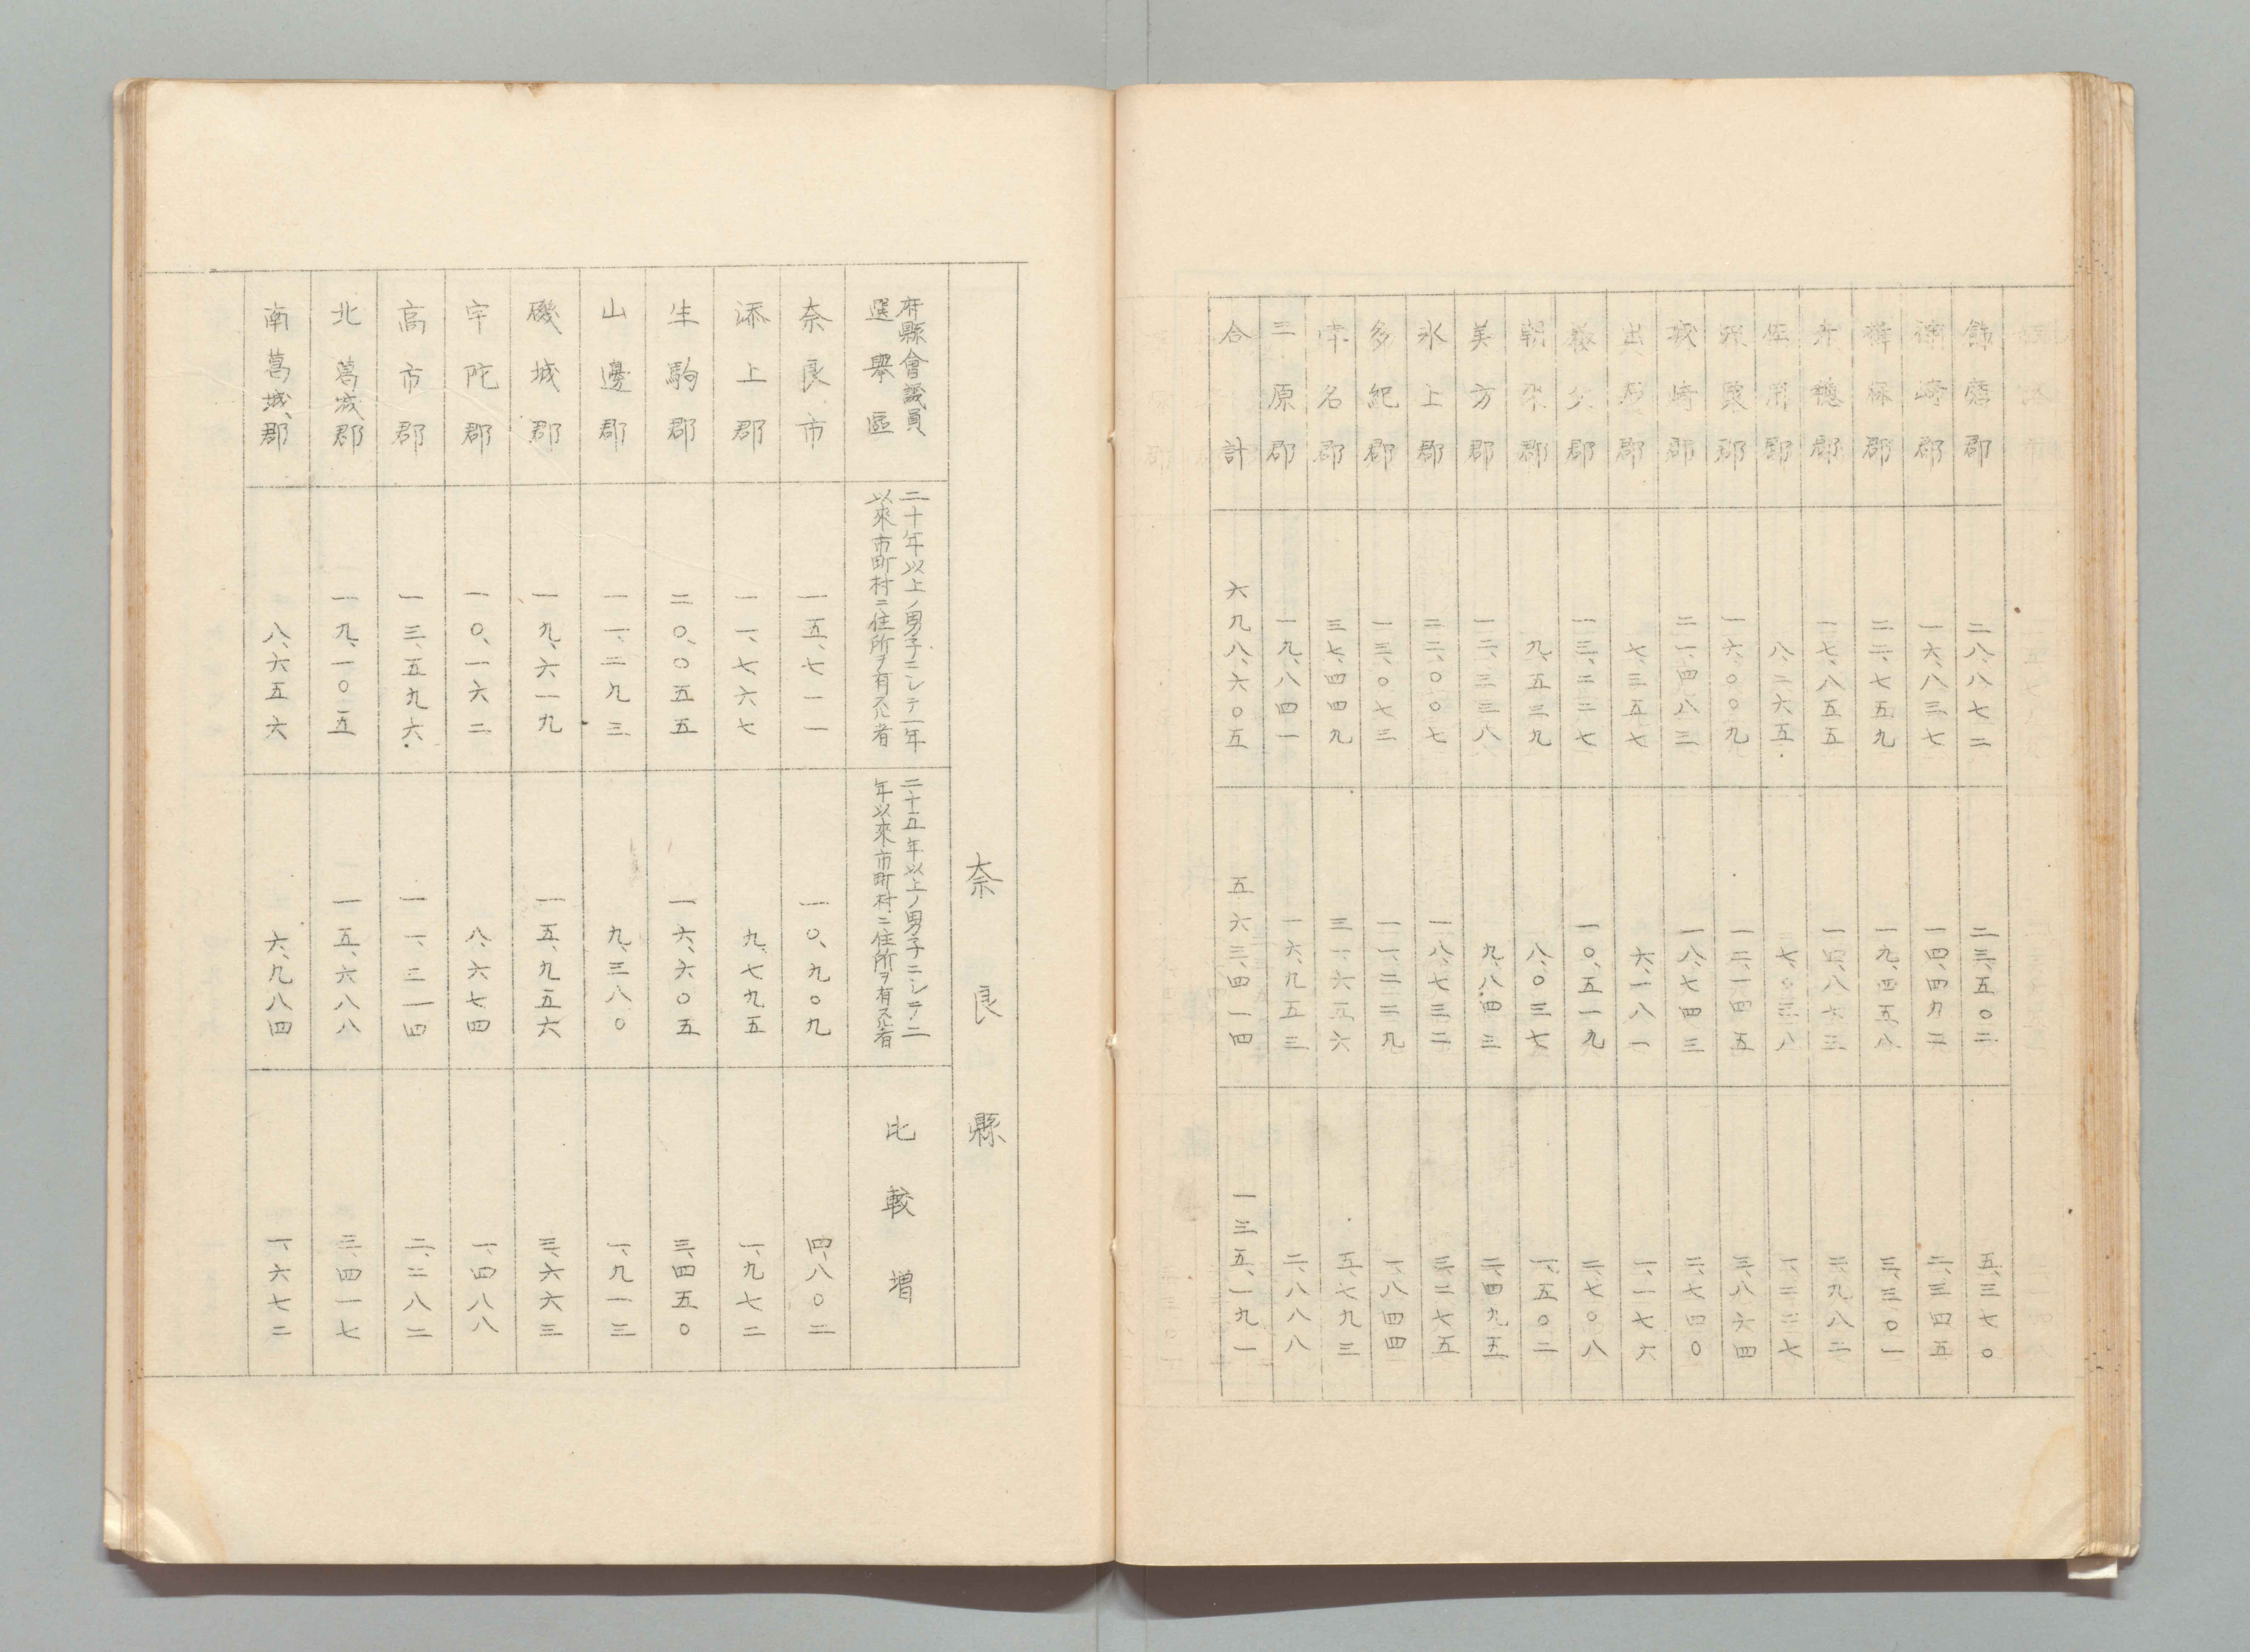 飾磨郡 二八、八七二 二三、五〇二 五、三七〇
神崎郡 一六、八三七 一四、四九二 二、三四五
揖保郡 二二、七五九 一九、四五八 三、三〇一
赤穗郡 一七、八五五 一四、八七三 二、九八二
佐用郡 八、二六五 七、〇三八 一、二二七
宍粟郡 一六、〇〇九 一二、一四五 三、八六四
城崎郡 二一、四八三 一八、七四三 二、七四〇
出石郡 七、三五七 六、一八一 一、一七六
養父郡 一三、二二七 一〇、五一九 二、七〇八
朝來郡 九、五三九 八、〇三七 一、五〇二
美方郡 一二、三三八 九、八四三 二、四九五
氷上郡 二二、〇〇七 一八、七三二 三、二七五
多紀郡 一三、〇七三 一一、二二九 一、八四四
津名郡 三七、四四九 三一、六五六 五、七九三
三原郡 一九、八四一 一六、九五三 二、八八八
合計 六九八、六〇五 五六三、四一四 一三五、一九一
奈良縣
府縣會議員
選擧區
二十年以上ノ男子ニシテ一年
以來市町村ニ住所ヲ有スル者
二十五年以上ノ男子ニシテ二
年以來市町村ニ住所ヲ有スル者
比較増
奈良市 一五、七一一 一〇、九〇九 四、八〇二
添上郡 一一、七六七 九、七九五 一、九七二
生駒郡 二〇、〇五五 一六、六〇五 三、四五〇
山邊郡 一一、二九三 九、三八〇 一、九一三
磯城郡 一九、六一九 一五、九五六 三、六六三
宇陀郡 一〇、一六二 八、六七四 一、四八八
高市郡 一三、五九六 一一、三一四 二、二八二
北葛城郡 一九、一〇五 一五、六八八 三、四一七
南葛城郡 八、六五六 六、九八四 一、六七二